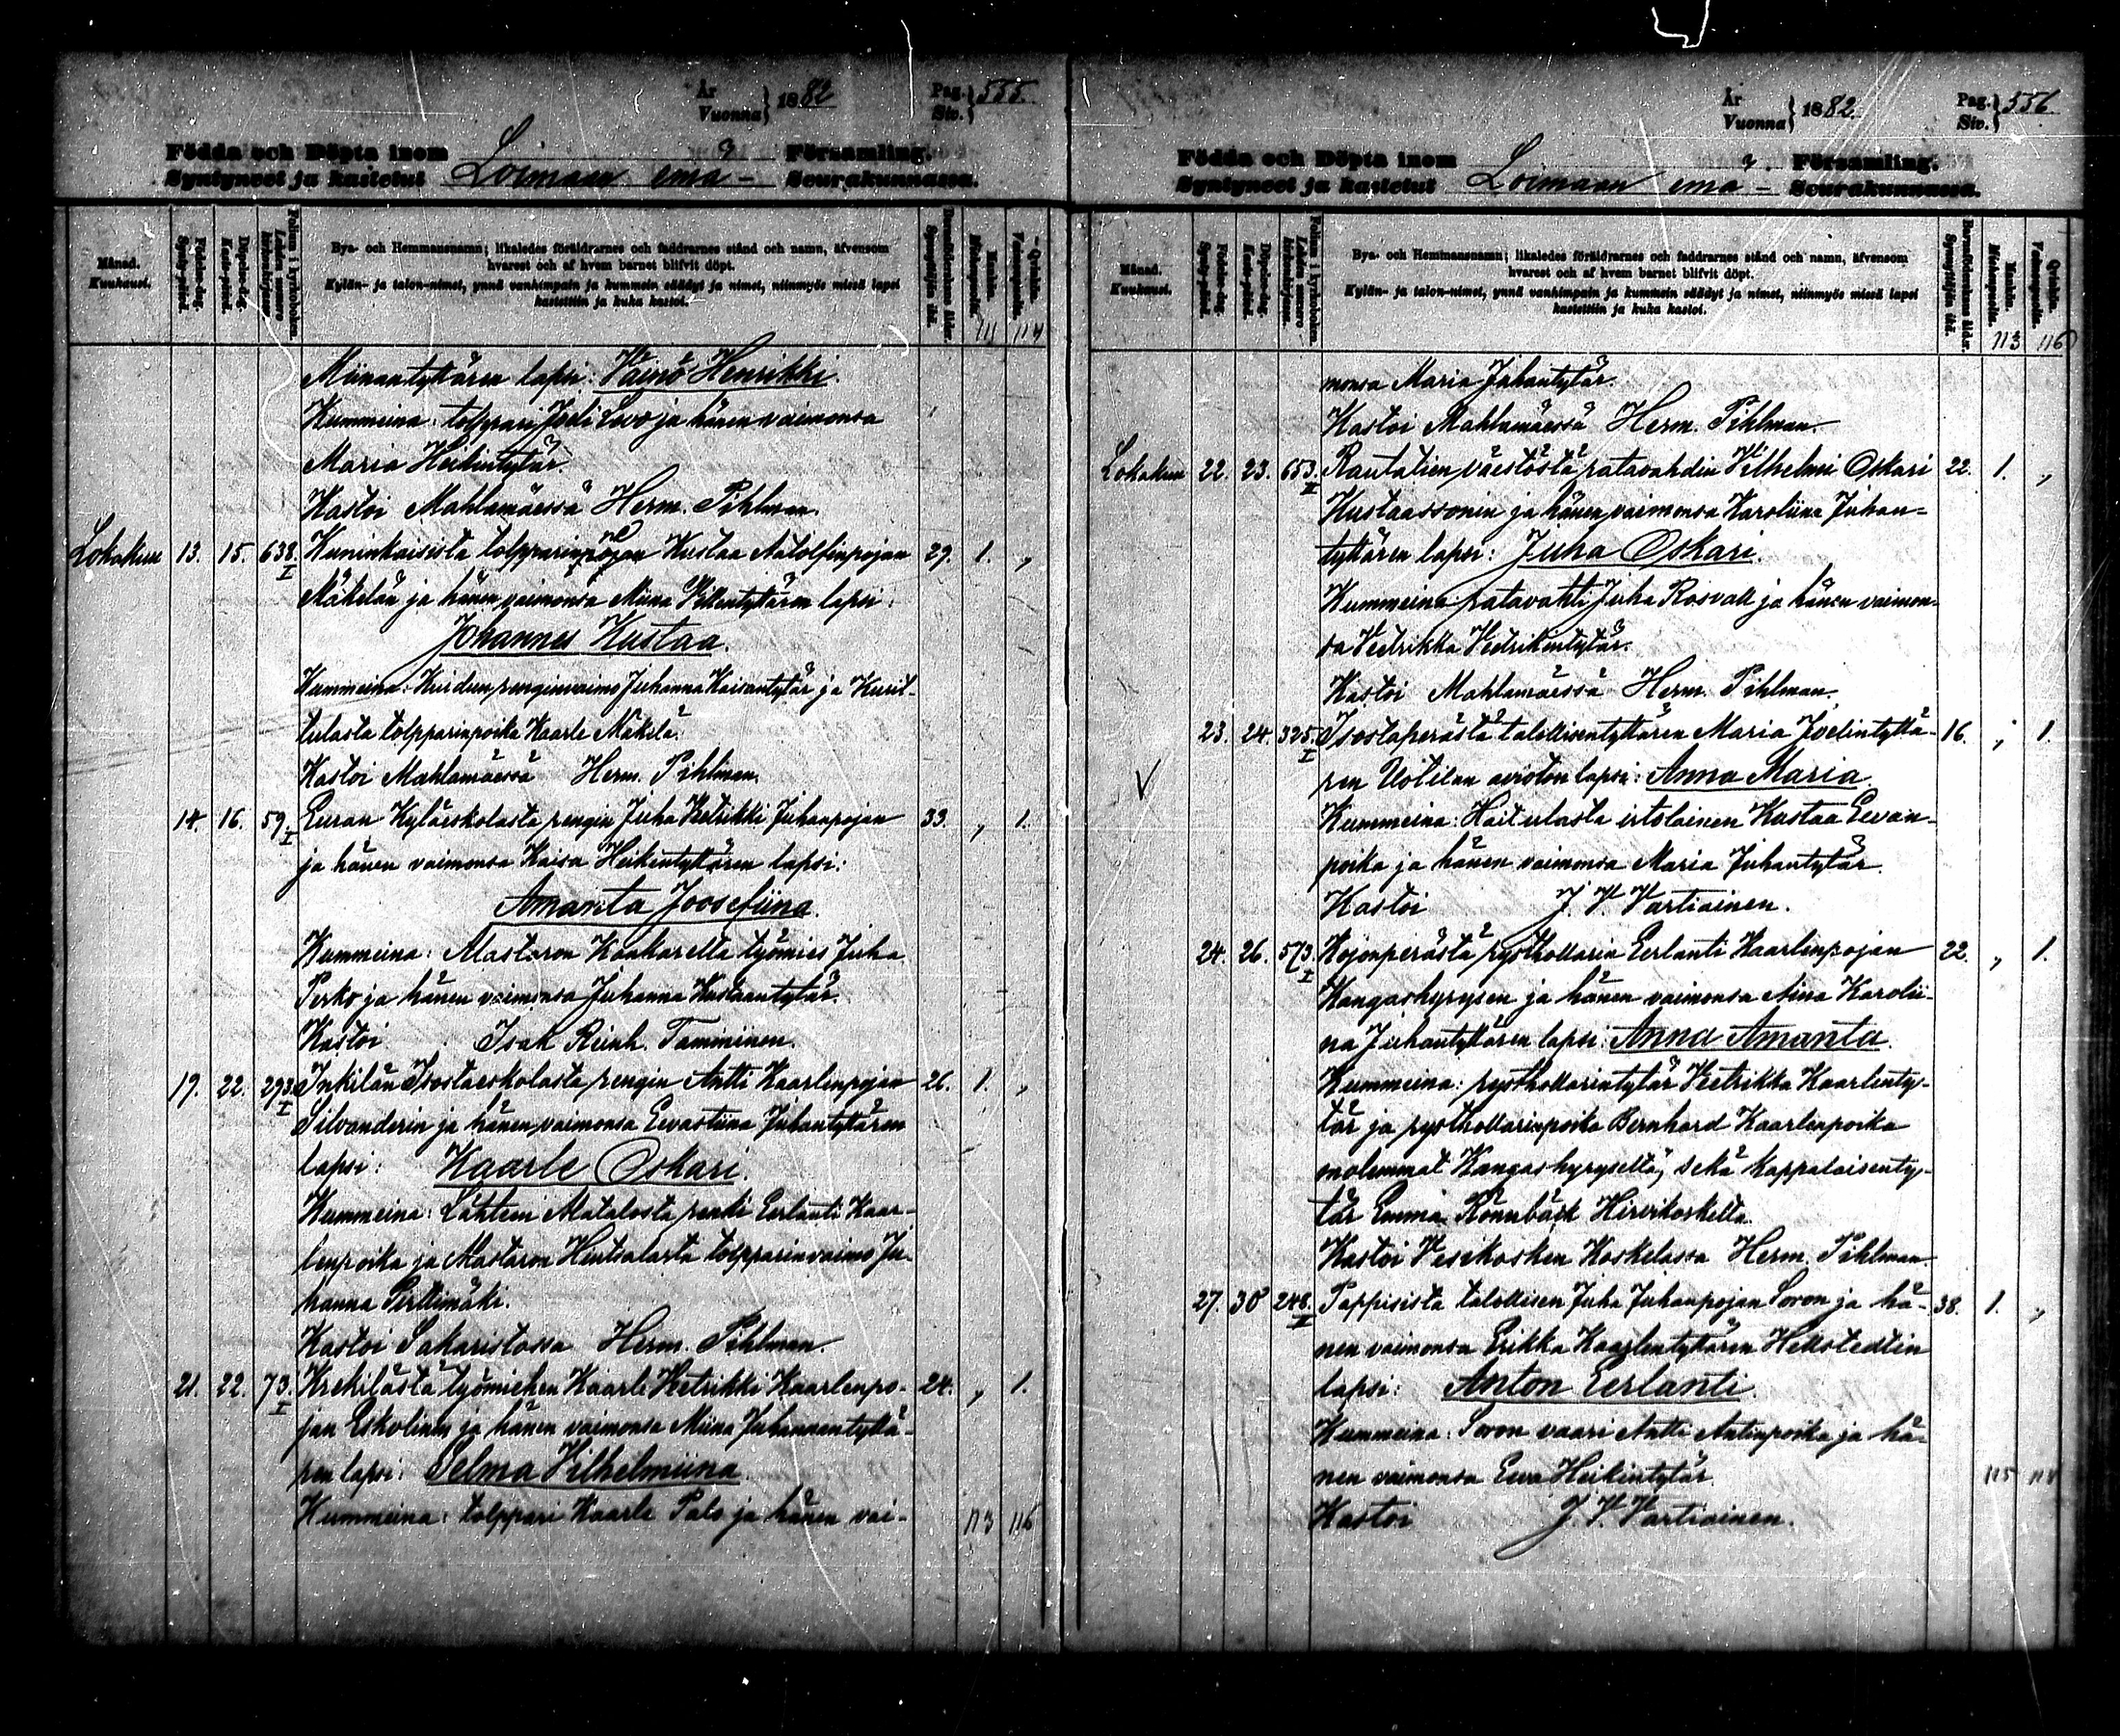 År
Vuonna } 1882
Pag.
Siv. } 555.
Födda och Döpta inom
Syntyneet ja kastetut Loimaan emä- Församling.
Seurakunnassa.
Månad.
Kuukausi.
Födelse-dag.
Synty-päivä.
Döpelse-dag.
Kaste-päivä.
Folium i kyrkoboken.
Bya- och Hemmansnamn; likaledes föräldrarnes och faddrarnes stånd och namn, äfvensom
hvarest och af hvem barnet blifvit döpt.
Kylän- ja talon-nimet, ynnä vanhimpain ja kummein säädyt ja nimet, niinmyös missä lapsi
kastettiin ja kuka kastoi.
Barnaföderskans ålder.
Synnyttäjän ikä.
Mankön.
Miehenpuolia.
Qvinkön.
Vaimonpuolia.
111 114
Miinantyttären lapsi: Väinö Henrikki.
Kummeina: tolppari Joeli Levo ja hänen vaimonsa
Maria Heikintytär.
Kastoi Mahlamäessä Herm. Pihlman.
Lokakuu 13. 15. 638. I Kuninkaisista tolpparinpojan Kustaa Aatolfinpojan 29. 1. „
Mäkelän ja hänen vaimonsa Miina Villentyttären lapsi:
Johannes Kustaa.
Kummeina: renginvaimo Juhanna Kaisantytär ja
tolpparinpoika Kaarle Mäkelä.
Kastoi Mahlamäessä Herm. Pihlman.
14. 16. 59. I Euran Kyläeskolasta rengin Juha Vetrikki Juhanpojan 33. „ 1.
ja hänen vaimonsa Kaisa Heikintyttären lapsi:
Amanta Joosefiina.
Kummeina: Alastaron Kankarelta työmies Juha
Perko ja hänen vaimonsa Juhanna Kustaantytär.
Kastoi Isak Reinh. Tamminen.
19. 22. 293. I Inkilän Isostaeskolasta rengin Antti Kaarlenpojan 26. 1. „
Silvanderin ja hänen vaimonsa Eevastiina Juhantyttären
lapsi: Kaarle Oskari.
Kummeina: Lähteen Matalosta renki Eerlanti Kaar-
lenpoika ja Alastaron Hentsalasta tolpparinvaimo Ju-
hanna Perttimäki.
Kastoi Sakaristossa Herm. Pihlman.
21. 22. 73. I Krekilästä työmiehen Kaarle Vetrikki Kaarlenpo- 24. „ 1.
jan Eskolinin ja hänen vaimonsa Miina Juhannentyttä-
ren lapsi: Selma Vilhelmiina.
Kummeina: tolppari Kaarle Palo ja hänen vai-
113 116
År
Vuonna } 1882.
Pag.
Siv. } 556
Födda och Döpta inom
Syntyneet ja kastetut Loimaan emä- Församling.
Seurakunnassa.
Månad.
Kuukausi.
Födelse-dag.
Synty-päivä.
Döpelse-dag.
Kaste-päivä.
Folium i kyrkoboken.
Bya- och Hemmansnamn; likaledes föräldrarnes och faddrarnes stånd och namn, äfvensom
hvarest och af hvem barnet blifvit döpt.
Kylän- ja talon-nimet, ynnä vanhimpain ja kummein säädyt ja nimet, niinmyös missä lapsi
kastettiin ja kuka kastoi.
Barnaföderskans ålder.
Synnyttäjän ikä.
Mankön.
Miehenpuolia.
Qvinkön.
Vaimonpuolia.
113 116
monsa Maria Juhantytär.
Kastoi Mahlamäessä Herm. Pihlman.
Lokakuu 22. 23. 653. II Rautatien väestöstä ratavahdin Vilhelmi Oskari 22. 1. „
Kustaassonin ja hänen vaimonsa Karoliina Juhan-
tyttären lapsi: Juha Oskari.
Kummeina: ratavahti Juha Rosvall ja hänen vaimon-
sa Vetrikka Vetrikintytär.
Kastoi Mahlamäessä Herm. Pihlman.
23. 24. 325. I Isostaperästä talollisentyttären Maria Joelintyttä- 16. „ 1.
V
ren Uotilan avioton lapsi: Anna Maria
Kummeina: irtolainen Kustaa Eevan-
poika ja hänen vaimonsa Maria Juhantytär.
Kastoi J. V. Vartiainen.
24. 26. 573. I Kojonperästä rysthollarin Eerlanti Kaarlenpojan 22. „ 1.
Kangashyrysen ja hänen vaimonsa Aina Karolii-
na Juhantyttären lapsi: Anna Amanta.
Kummeina: rysthollarintytär Vetrikka Kaarlenty-
tär ja rysthollarinpoika Bernhard Kaarlenpoika
molemmat Kangashyryseltä, sekä kappalaisenty-
tär Emma Rönnbäck Hirvikoskelta.
Kastoi Vesikosken Koskelassa Herm. Pihlman.
27. 30 248. II Pappisista talollisen Juha Juhanpojan Soron ja hä- 38. 1. „
nen vaimonsa Erikka Kaarlentyttären Hellstedtin
lapsi: Anton Eerlanti.
Kummeina: Soron vaari Antti Antinpoika ja hä-
nen vaimonsa Eeva Heikintytär.
115 118
Kastoi J. V. Vartiainen.